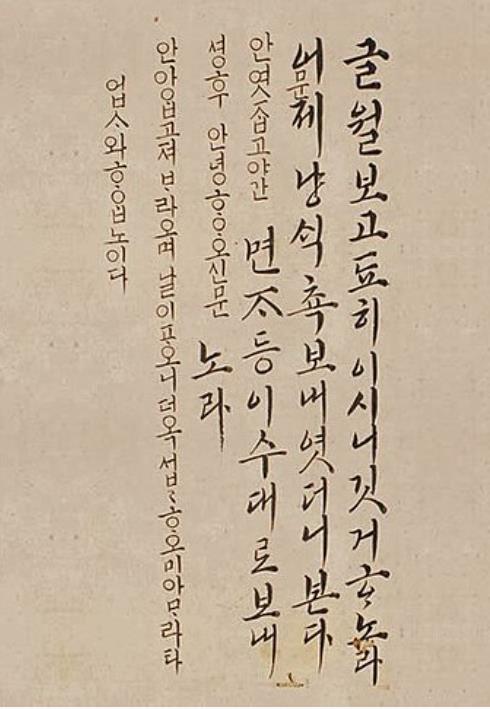 글월 보고 됴히 이시니 깃거ᄒᆞ노라
어제 냥ᄉᆡᆨ쵹 보내엿더니 본다
면ᄌᆞ등 이 수대로 보내
노라
문
안 엿ᄌᆞᆸ고 야간
셩후 안녕ᄒᆞᄋᆞ오신 문
안 아ᄋᆞᆸ고져 ᄇᆞ라오며 날이 포 오니 더옥 섭〃ᄒᆞ오미 아ᄆᆞ라타
업ᄉᆞ와 ᄒᆞᄋᆞᆸ노이다